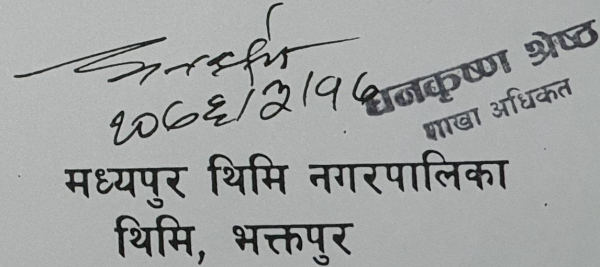 २०७६/३/१७
धनकृष्ण श्रेष्ठ
शाखा अधिकृत
मध्यपुर थिमि नगरपालिका
थिमि, भक्तपुर